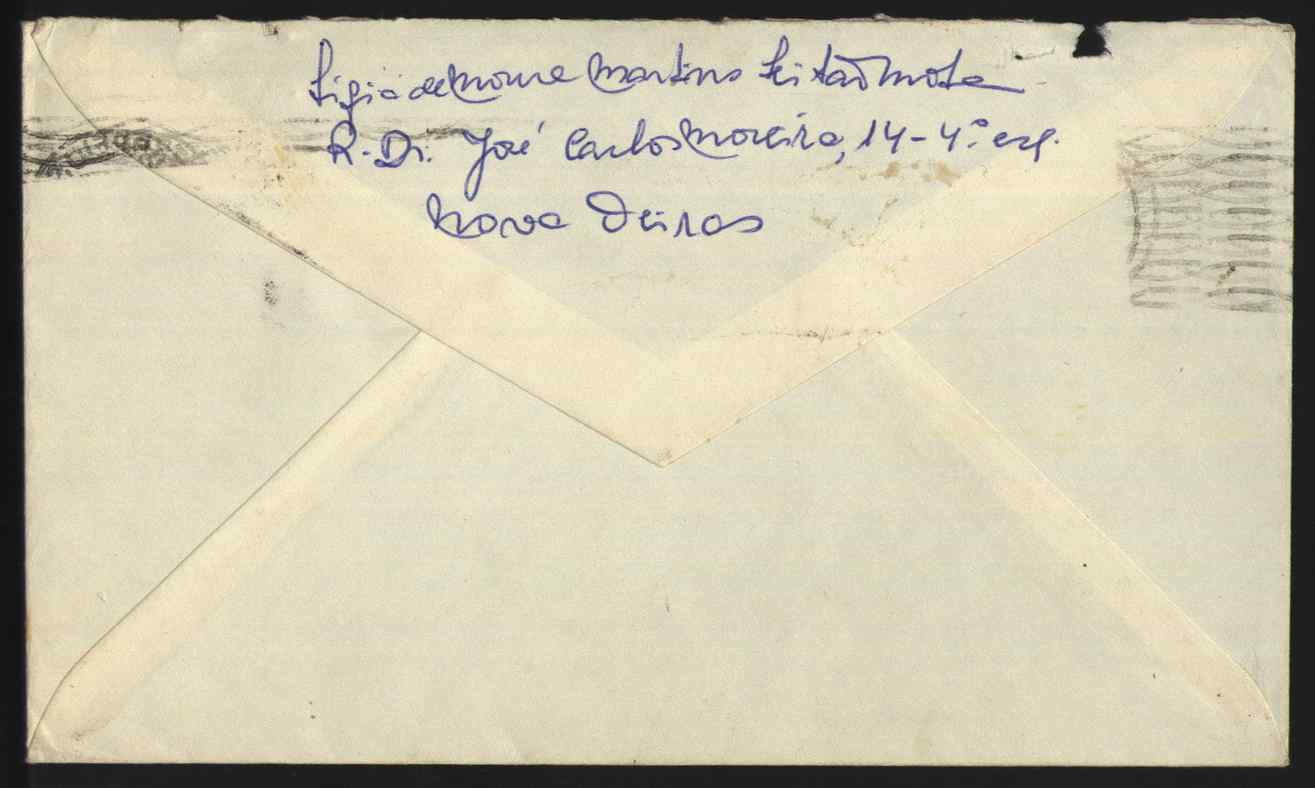 Ligia de Moura Martins Leitão Mota
R. Dr. José Carlos Moreira, 14-4.º esq.
Nova Oeiras